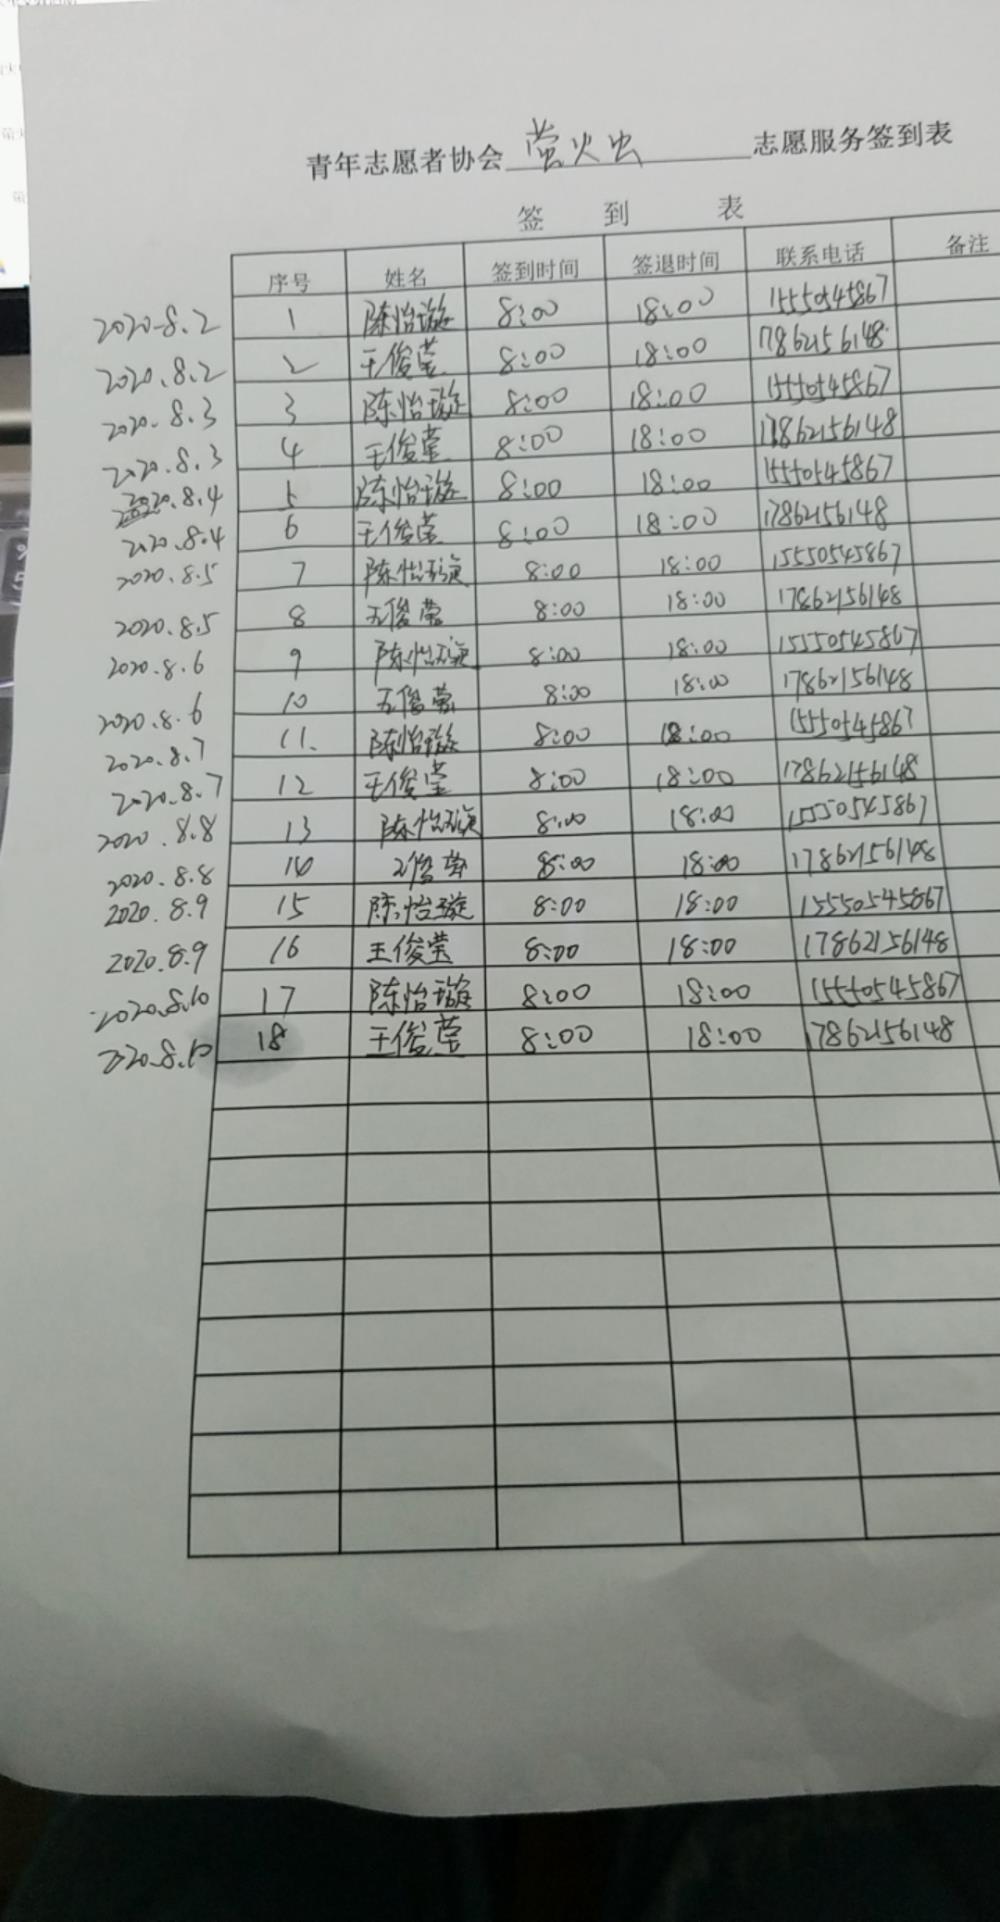 青年志愿者协会 萤火虫 志愿服务签到表
签 到 表
序号 姓名 签到时间 签退时间 联系电话 备注
2020.8.2 1 陈怡璇 8:00 18:00 15550545867
2020.8.2 2 王俊莹 8:00 18:00 17862156148
2020.8.3 3 陈怡璇 8:00 18:00 15550545867
2020.8.3 4 王俊莹 8:00 18:00 17862156148
2020.8.4 5 陈怡璇 8:00 18:00 15550545867
2020.8.4 6 王俊莹 8:00 18:00 17862156148
2020.8.5 7 陈怡璇 8:00 18:00 15550545867
2020.8.5 8 王俊莹 8:00 18:00 17862156148
2020.8.6 9 陈怡璇 8:00 18:00 15550545867
2020.8.6 10 王俊莹 8:00 18:00 17862156148
2020.8.7 11. 陈怡璇 8:00 18:00 15550545867
2020.8.7 12 王俊莹 8:00 18:00 17862156148
2020.8.8 13 陈怡璇 8:00 18:00 15550545867
2020.8.8 14 王俊莹 8:00 18:00 17862156148
2020.8.9 15 陈怡璇 8:00 18:00 15550545867
2020.8.9 16 王俊莹 8:00 18:00 17862156148
2020.8.10 17 陈怡璇 8:00 18:00 15550545867
2020.8.10 18 王俊莹 8:00 18:00 17862156148